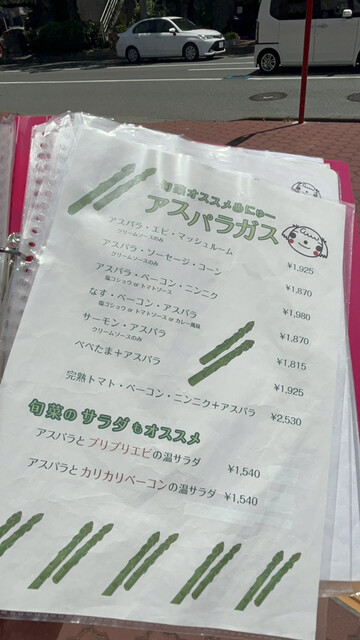 旬菜オススメめにゅー
アスパラガス
アスパラ・エビ・マッシュルーム ¥1,925
クリームソースのみ
アスパラ・ソーセージ・コーン ¥1,870
クリームソースのみ
アスパラ・ベーコン・ニンニク ¥1,980
塩コショウ or トマトソース
なす・ベーコン・アスパラ ¥1,870
塩コショウ or トマトソース or カレー風味
サーモン・アスパラ ¥1,815
クリームソースのみ
ペペたま+アスパラ ¥1,925
完熟トマト・ベーコン・ニンニク+アスパラ ¥2,530
旬菜のサラダもオススメ
アスパラとプリプリエビの温サラダ ¥1,540
アスパラとカリカリベーコンの温サラダ ¥1,540